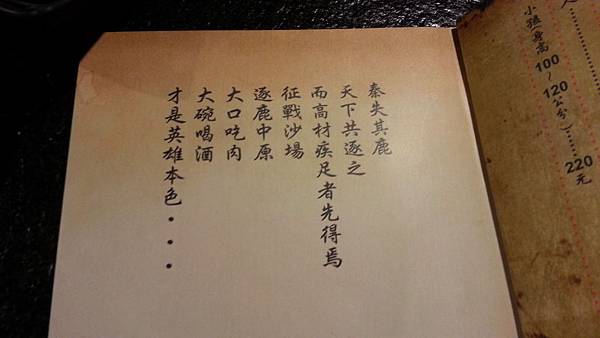 秦失其鹿
天下共逐之
而高材疾足者先得焉
征戰沙場
逐鹿中原
大口吃肉
大碗喝酒
才是英雄本色・・・
小孩身高100~120公分)......220元